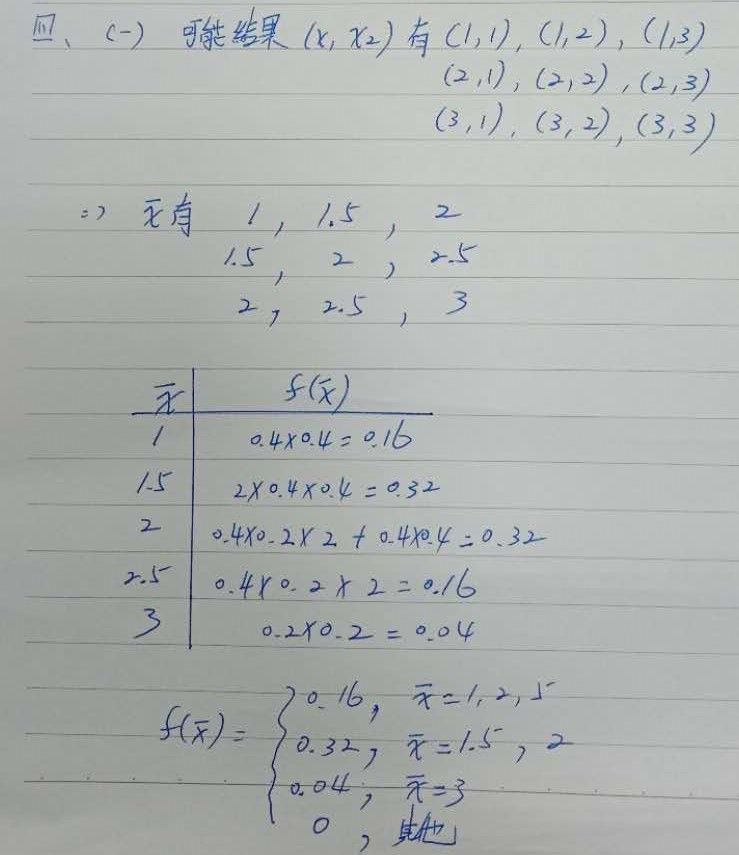 四、(一) 可能結果 (x, x2) 有 (1,1), (1,2), (1,3)
(2,1), (2,2), (2,3)
(3,1), (3,2), (3,3)
=> x̄有 1, 1.5, 2
1.5, 2, 2.5
2, 2.5, 3
x̄ f(x̄)
1 0.4×0.4=0.16
1.5 2×0.4×0.4=0.32
2 0.4×0.2×2+0.4×0.4=0.32
2.5 0.4×0.2×2=0.16
3 0.2×0.2=0.04
f(x̄)= { 0.16, x̄=1,2,5
0.32, x̄=1.5, 2
0.04, x̄=3
0, 其他